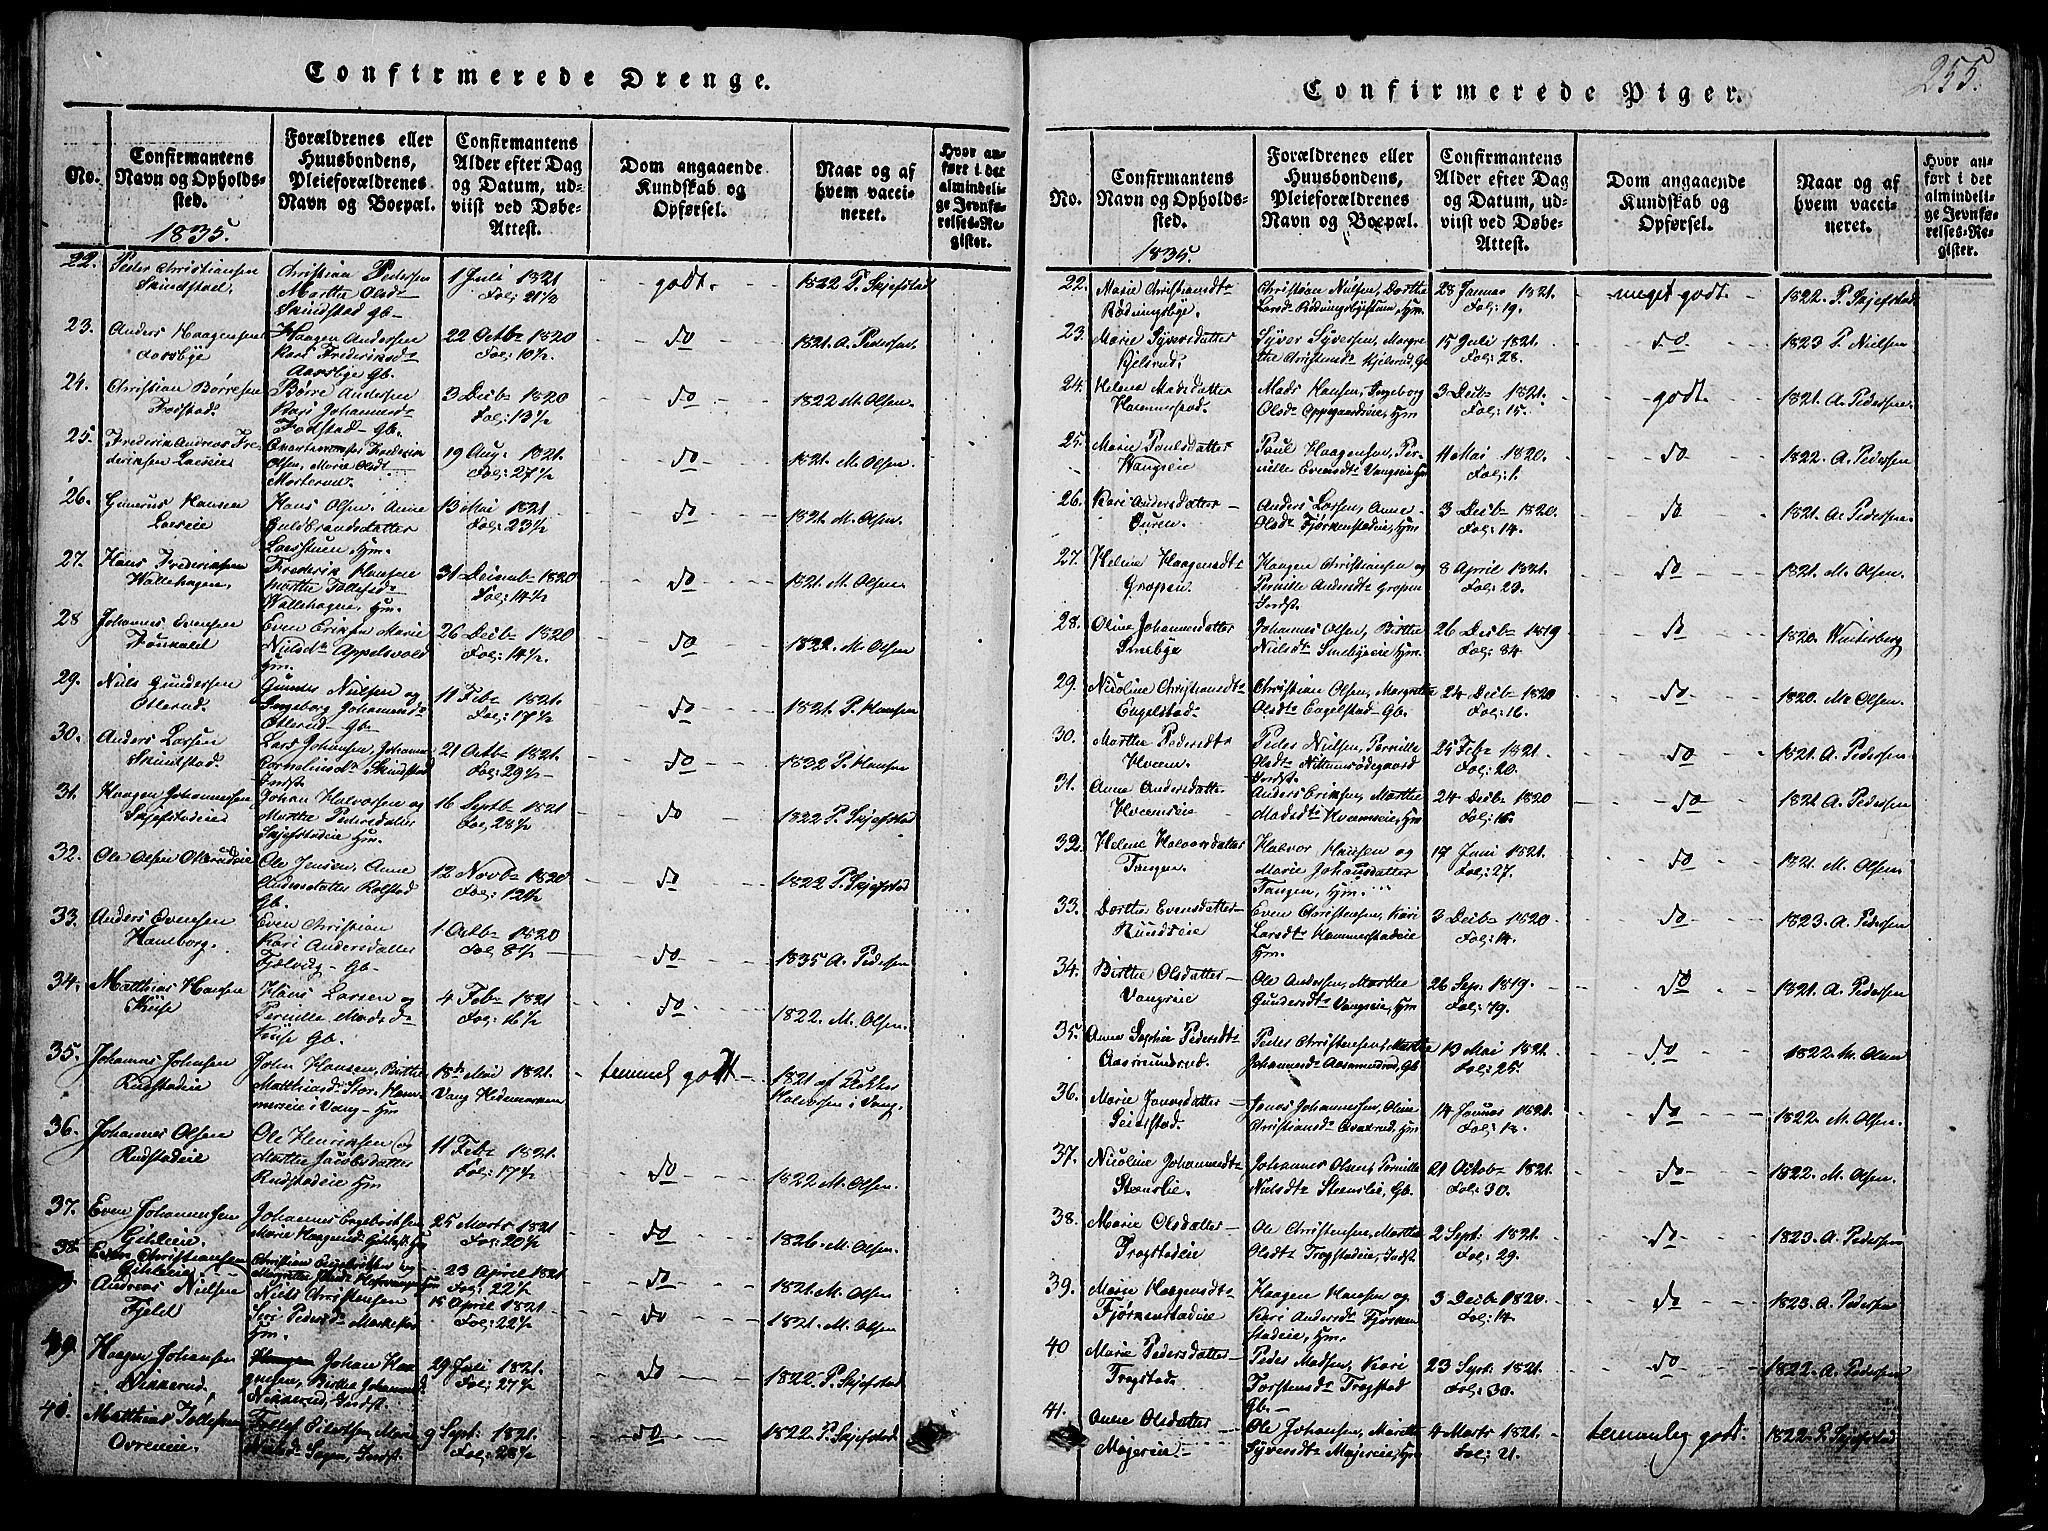 Confirmerede Drenge.
No.
Confirmantens
Navn og Opholds-
sted.
1835.
Forældrenes eller
Huusbondens,
Pleieforældrenes
Navn og Boepæl.
Confirmantens
Alder efter Dag
og Datum, ud-
viist ved Døbe-
Attest.
Dom angaaende
Kundskab og
Opførsel.
Naar og af
hvem vacci-
neret.
Hvor an-
ført i det
almindeli-
ge Jevnfø-
relses-Re-
gister.
22. Peder Christiansen
Skindstad.
Christian Pedersen
Marthe Olsd
Skindstad Gb
1 Juli 1821
Fol: 21½
godt.
1822 P. Skjefstad
23. Anders Haagensen
Aarsbye
Haagen Andersen
Kari Frederiksd
Aarsbye Gb.
22 Octb 1820
Fol: 10½
do
1821. A. Pedersen.
24. Christian Børresen
Børre Andersen
Kari Johannesd
Fodstad Gb.
3 Decb 1820
Fol: 13½
do
1822 M. Olsen.
25. Frederik Andreas Fre-
deriksen
Frederik
Olsen, Marie Olsd
19 Aug: 1821.
Fol: 27½
do
1821. M. Olsen.
26. Gunerus Hansen
Hans Olsen. Anne
Guldbrandsdatter
Larsstuen, Hm.
13 Mai 1821.
Fol: 23½
do
1821. M. Olsen.
27. Hans Frederiksen
Wallehagen,
Frederik Hansen
Marthe Tollefsd
Wallehagen, Hm.
31 Decmb 1820
Fol: 14½
do
1821. M. Olsen.
28 Johannes Evensen
Even Eriksen Marie
Nielsd Appelsvold
Hm.
26 Decb 1820
Fol: 14½
do
1822. M. Olsen
29. Niels Gundersen
Otterud.
Gunder Nielsen og
Ingeborg Johannesd
Otterud Gb
11 Feb 1821.
Fol: 17½
do
1821. P. Hansen
30. Anders Larsen
Skindstad.
Lars Johansen, Johanne
Corneliusd Skindstad
Inds
21 Octb 1821
Fol: 29½
do
1832 P. Hansen
31. Haagen Johannesen
Skjefstadeie
Johan Halvorsen og
Marthe Pedersdatter
Skjefstadeie Hm.
16 Septb 1821
Fol 28½
do
1822 P. Skjefstad
32. Ole Olsen Otterudeie
Ole Jensen, Anne
Andersdatter Rolstad
Gb.
12 Novb 1820
Fol: 12½
do
1822 P. Skjefstad
33. Anders Evensen
Hamborg.
Even Christian
Kari Andersdatter
Fjelveg Gb
1 Octb 1820
Fol 8½
do
1835 A. Pedersen
34. Matthias Hansen
Kiise
Hans Larsen og
Pernille Madsd
Kiise Gb.
4 Feb 1821
Fol: 16½
do
1822. M. Olsen.
35. Johannes Johnsen
Rudstadeie
John Hansen, Birthe
Matthiasd Stor-Ham-
merseie i Vang Hm
18 Mai 1821.
Vang Hedemarken
temmel godt
1821 af
Halvorsen i Vang.
36. Johannes Olsen
Rudstadeie
Ole Henriksen og
Marthe Jacobsdatter
Rudstadeie Hm
11 Feb 1821.
Fol: 17½
do
1822 M. Olsen.
37. Even Johannesen
Gihleeie.
Johannes Engebretsen
Marie Haagensd. Gihleeie Hm
25 Marts 1821
Fol: 20½
do
1826. M. Olsen.
38. Even Christiansen
Gihleeie
Christian Engebretsen og
23 April 1821
Fol: 22½
do
1821. M. Olsen
39 Andreas Nielsen
Fjeld
Niels Christensen
Siri Pedersd
Hm.
15 April 1821.
Fol: 22½
do
1821. M. Olsen
Haagen Johansen
Nikkerud.
Johan Haa-
gensen, Birthe Johannesd
Nikkerud, Indst.
29 Juli 1821.
Fol: 27½
do
1822 P. Skjefstad
40. Matthias Tollefsen
Ovreneie.
Tollef Eilertsen, Marie
9 Sept: 1821.
Fol: 28½
do
1822 P. Skjefstad
255.
Confirmerede Piger.
No.
Confirmantens
Navn og Opholds-
sted.
1835.
Forældrenes eller
Huusbondens,
Pleieforældrenes
Navn og Boepæl.
Confirmantens
Alder efter Dag
og Datum, ud-
viist ved Døbe-
Attest.
Dom angaaende
Kundskab og
Opførsel.
Naar og af
hvem vacci-
neret.
Hvor an-
ført i det
almindeli-
ge Jevnfø-
relses-Re-
gister.
22. Marie Christiansdt
Rødningsbye.
Christian Nielsen, Dorthe
Larsd Rødningsbyestuen, Hm.
28 Januar 1821.
Fol: 19.
meget godt.
1822. P. Skjefstad
23. Marie Syversdatter
Kjelsrud.
Syver Syversen, Margre-
the Christiansd Kjelsrud, Gb
15 Juli 1821.
Fol: 28.
do
1823 P. Nielsen
24. Helene Madsdatter
Hammerstad.
Mads Hansen, Ingeborg
Olsd Oppegaardseie, Hm
3 Decb 1821.
Fol: 15.
godt.
1821. A. Pedersen.
25. Marie Poulsdatter
Vangseie
Poul Haagensen, Per-
nille Evensdt Vangseie Hm
11 Mai 1820.
Fol: 1.
do
1822. A. Pedersen
26. Kari Andersdatter
Juren.
Anders Larsen, Anne
Olsdt Fjørkenstadeie, Hm
3 Decb 1820.
Fol: 14.
do
1821. A. Pedersen.
27. Helene Haagensdt
Gropen.
Haagen Christiansen og
Pernille Andersdt Gropen
Indst.
8 April 1821.
Fol: 23.
do
1821. M. Olsen.
28. Oline Johannesdatter
Smebye
Johannes Olsen, Birthe
Nielsdt Smebyeeie Hm.
26 Decb 1819
Fol: 84.
do
1820. Winterborg
29. Nicoline Christiansdt
Engelstad.
Christian Olsen, Margrethe
Olsdt Engelstad Gb.
24 Decb 1820
Fol: 16.
do
1820. M. Olsen.
30. Marthe Pedersdt
Hveem.
Peder Nielsen, Pernille
Olsdt Nittumsødegaard
Indst.
25 Feb 1821.
Fol: 20.
do
1821. A. Pedersen
31. Anne Andersdatter
Hveemseie
Anders Eriksen, Marthe
Madsdt Hveemseie, Hm
24 Decb 1820
Fol: 16.
do
1821 A. Pedersen
32. Helene Halvorsdatter
Tangen.
Halvor Hansen og
Marie Johansdatter
Tangen, Hm.
17 Juni 1821.
Fol: 27.
do
1821. M. Olsen.
33. Dorthe Evensdatter
Even Christensen, Kari
Larsdt Hammerstadeie
Hm
3 Decb 1820
Fol: 14.
do
1823. A. Pedersen
34. Birthe Olsdatter
Vangseie
Ole Andersen, Marthe
Gundersdt Vangseie, Hm
26 Sep: 1819.
Fol: 79.
do
1821. A. Pedersen
35. Anne Sophie Pedersdt
Aasmundrud.
Peder Christensen, Marthe
Johannesdt Aasmundrud, Gb
13 Mai 1821.
Fol: 25.
do
1822. M. Olsen
36. Marie Jonasdatter
Peierstad.
Jonas Johannesen, Oline
Christiansd Hm
14 Januar 1821.
Fol: 18.
do
1822. M. Olsen.
37. Nicoline Johannesdt
Steenslie.
Johannes Olsen, Pernille
Nielsdt Steenslie, Gb.
21 Octob 1821.
Fol: 30.
do
1822. M. Olsen.
38. Marie Olsdatter
Trogstadeie
Ole Christensen, Marthe
Olsdt Trogstadeie, Indst.
2 Sept: 1821.
Fol: 29.
do
1823. A. Pedersen
39. Marie Haagensdt
Fjørkenstadeie
Haagen Hansen og
Kari Andersdt Fjørken-
stadeie, Hm.
3 Decb 1820.
Fol: 14.
do
1823. A. Pedersen
40 Marie Pedersdatter
Trogstad.
Peder Madsen, Kari
Torstensdt Trogstad
Gb.
23 Sept: 1821.
Fol: 30.
do
1822. A. Pedersen
41. Anne Olsdatter
Majereie
Ole Johansen, Marithe
Syversdt Majereie, Hm
4 Marts 1821.
Fol: 21.
temmelig godt.
1822 P. Skjefstad